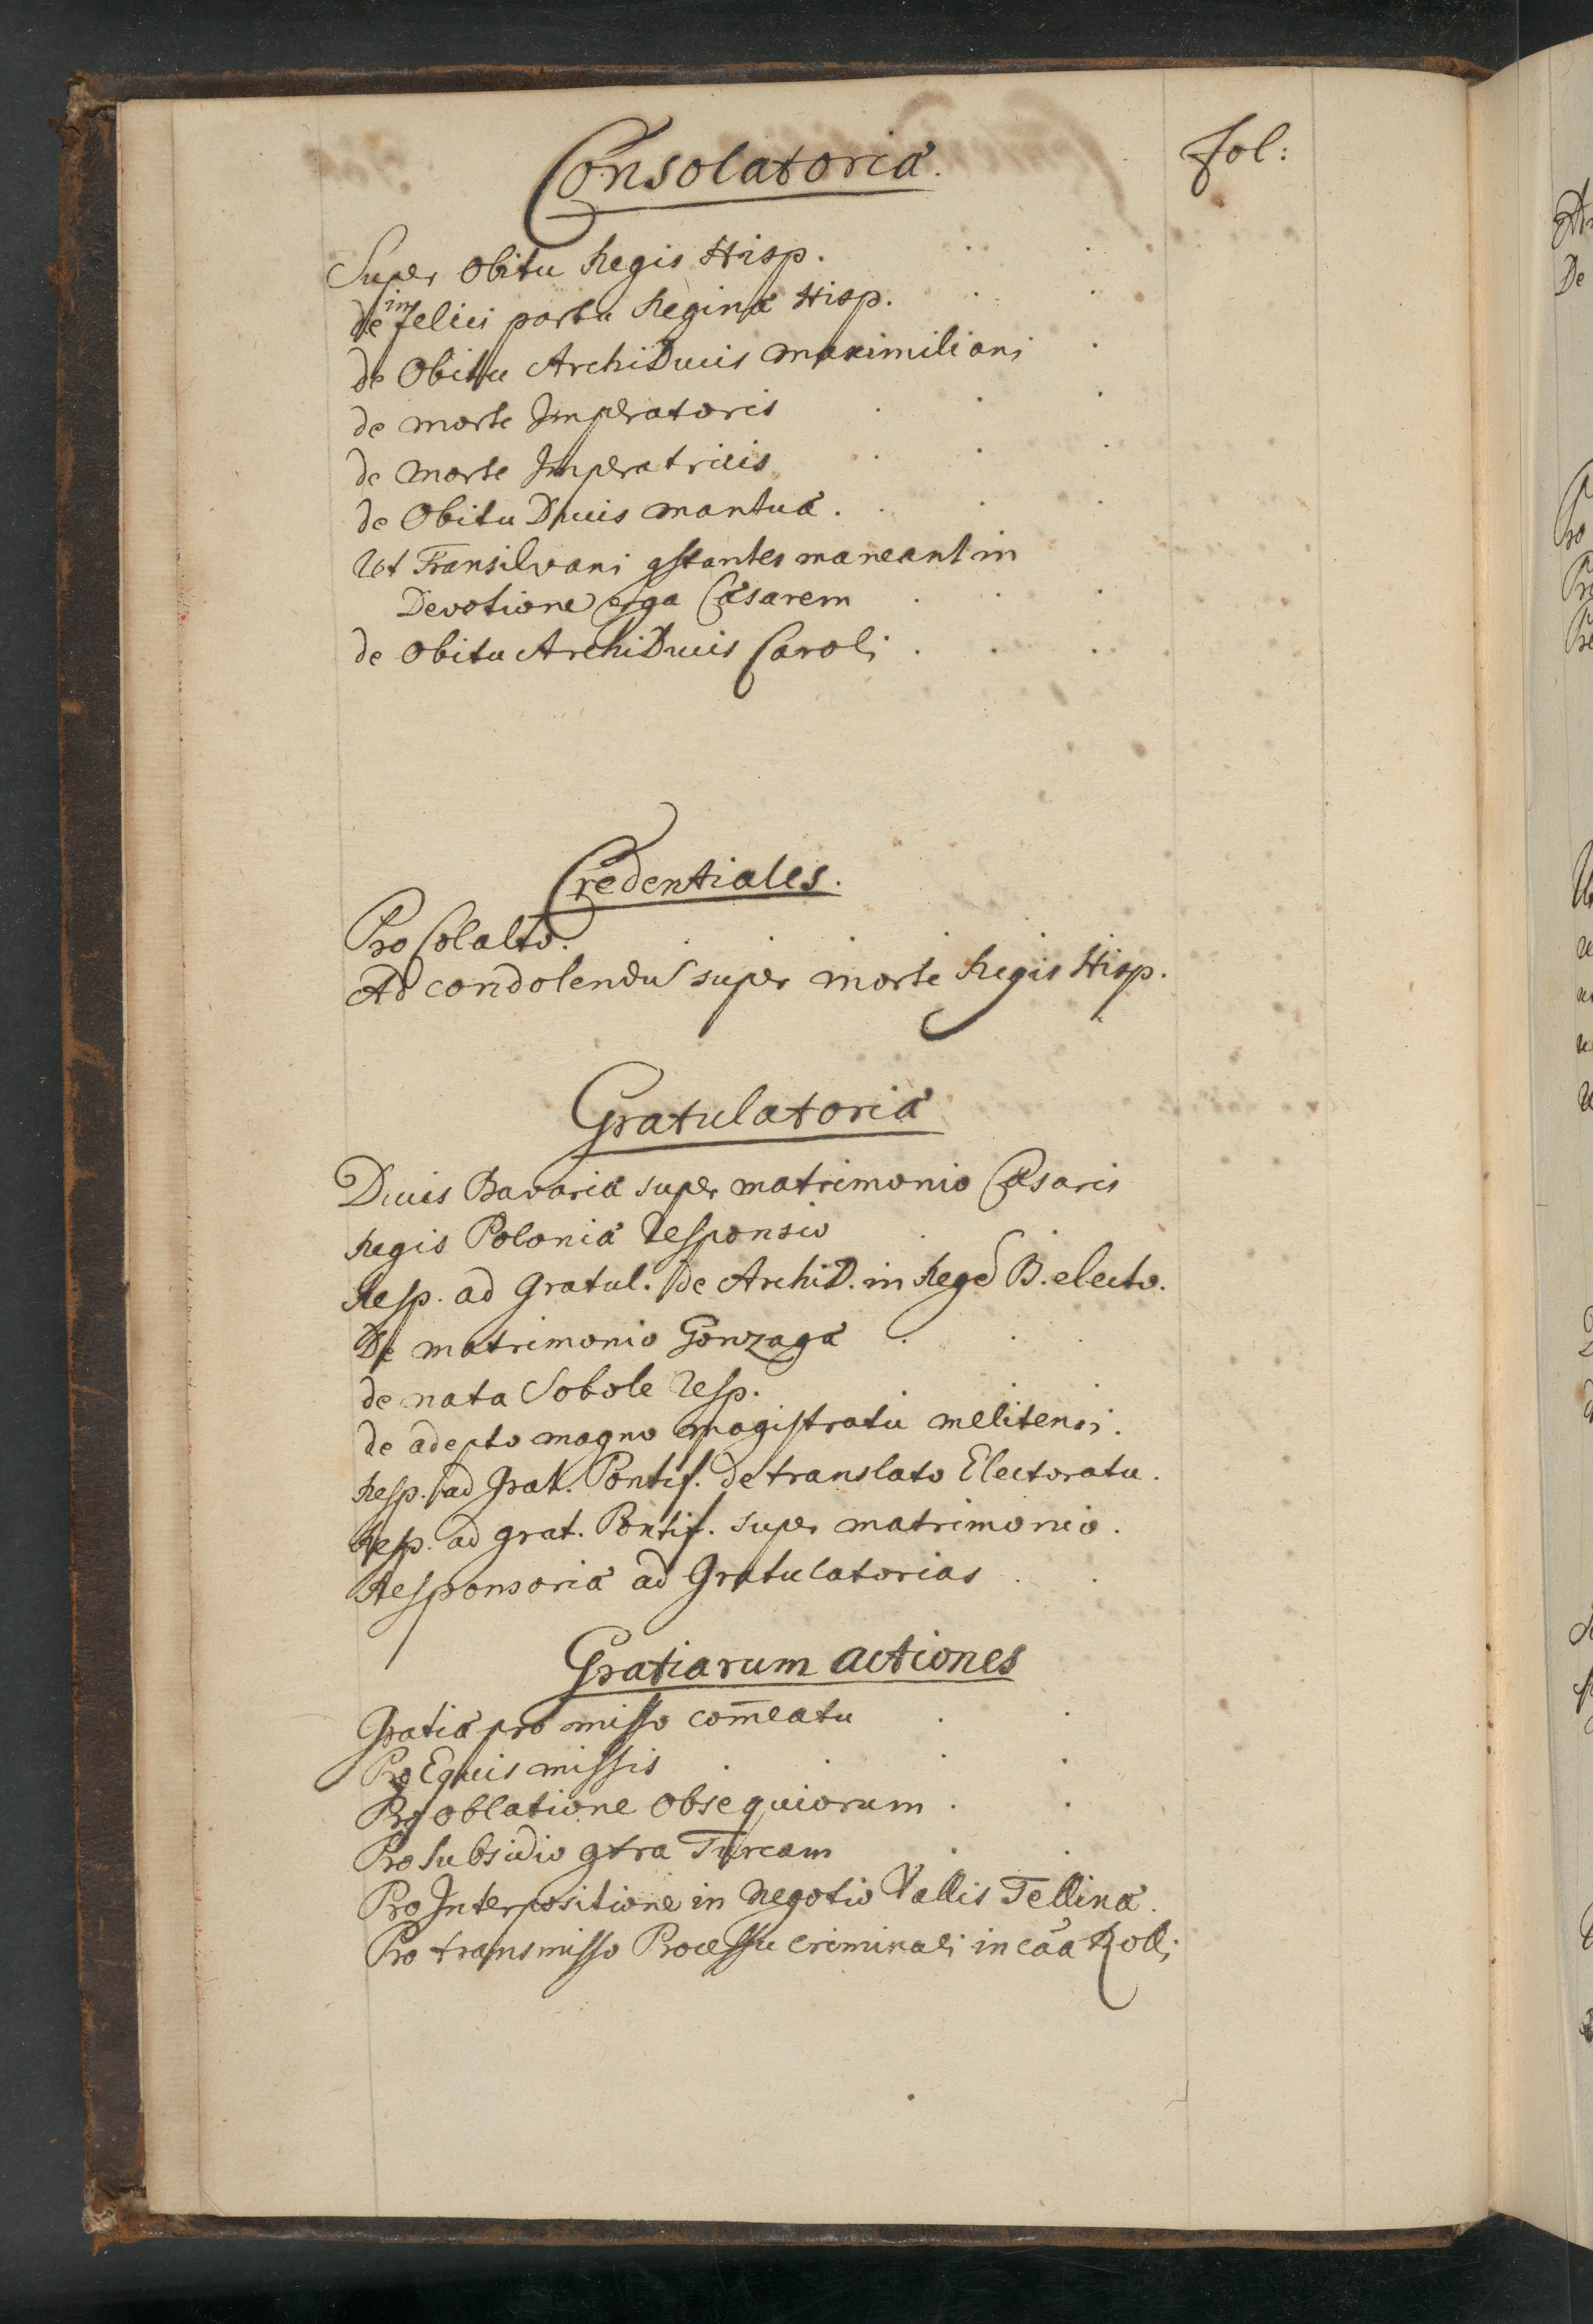 Consolatoriæ.
Fol:
Super Obitu Regis Hisp.
de infelici partu Reginæ Hisp.
de Obitu ArchiDucis Maximiliani
de morte Imperatoris
de Morte Imperatricis
de Obitu Ducis Mantuæ.
Ut Transilvani gstantes maneant in
Devotione erga Cæsarem
de Obitu ArchiDucis Caroli
Credentiales.
Pro Colalto.
Ad condolendū super morte Regis Hisp.
Gratulatoriæ
Ducis Bavariæ super matrimonio Cæsaris
Regis Poloniæ Responsio
Resp. ad Gratul. de ArchiD. in Regē B. electo.
De matrimonio Gonzagæ
de nata Sobole Resp.
de adepto magno Magistratu Melitensi.
Resp. ad Grat. Pontif. de translato Electoratu.
Resp. ad grat. Pontif. super matrimonio.
Responsoriæ ad Gratulatorias
Gratiarum actiones
Gratiæ pro misso com̄eatu
Pro Equis missis
Pro oblatione Obsequiorum
Pro Subsidio gtra Turcam
Pro Interpositione in Negotio Vallis Tellinæ.
Pro transmisso Processu criminali in cāa Rolli